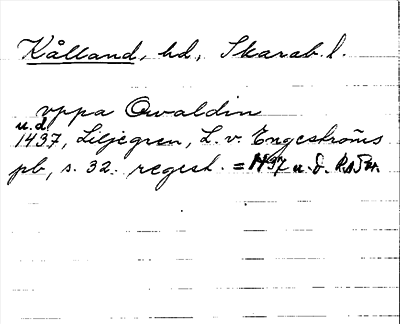 Kålland, hd., Skarab. l.
vppa Qwaldin
u.d.
1437, Liljegren, L. v. Engeströms
pb, s. 32. regest. = 1437 u. d. RAPM.